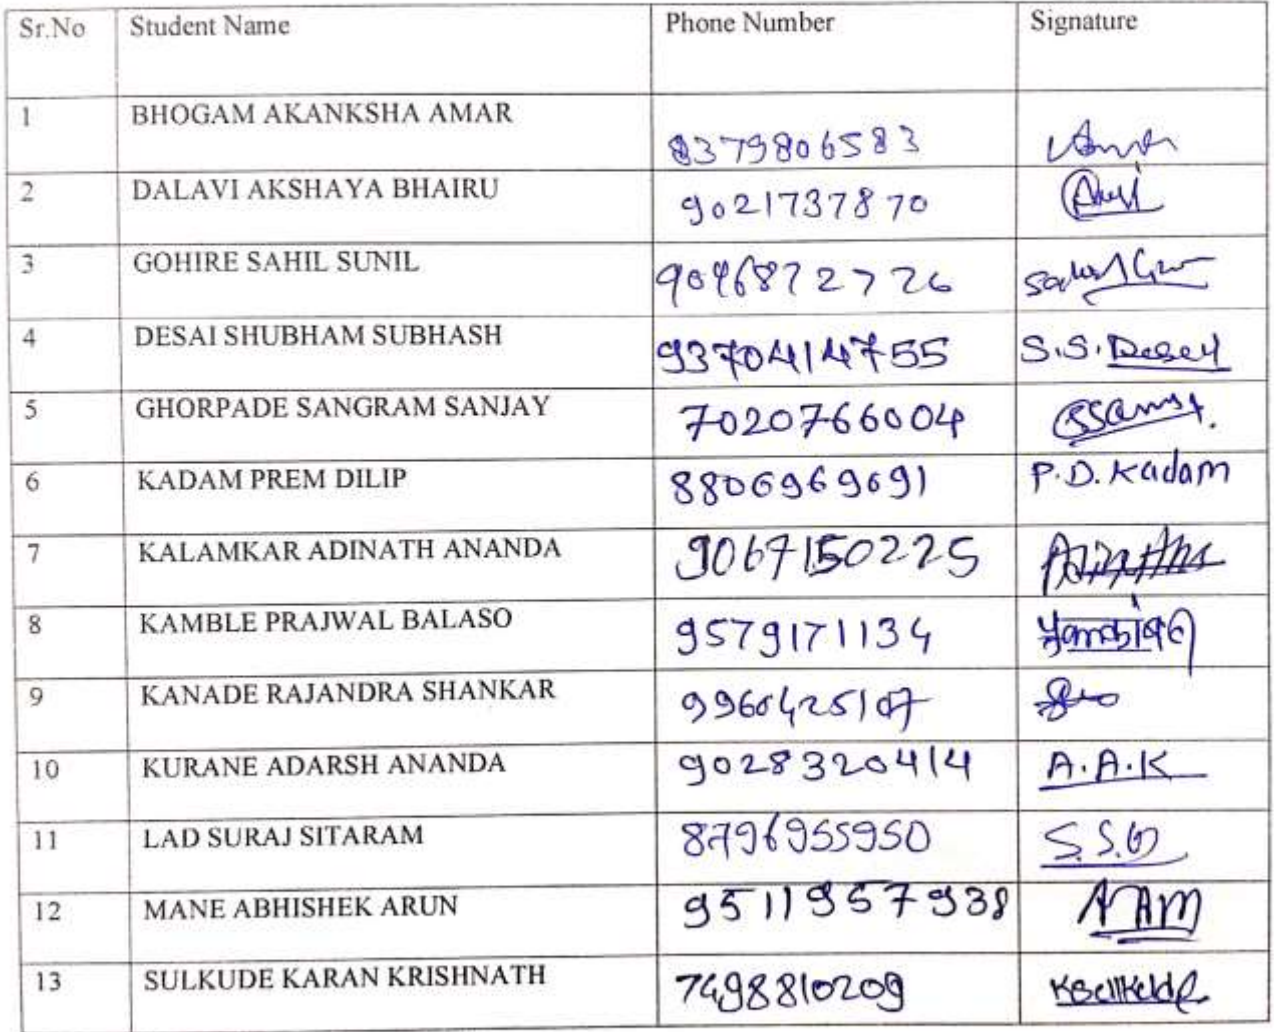 Sr.No Student Name Phone Number Signature
1 BHOGAM AKANKSHA AMAR 8379806583
2 DALAVI AKSHAYA BHAIRU 9021737870
3 GOHIRE SAHIL SUNIL 9046872726
4 DESAI SHUBHAM SUBHASH 9370414755 S.S.Desai
5 GHORPADE SANGRAM SANJAY 7020766004
6 KADAM PREM DILIP 8806969691 P.D.Kadam
7 KALAMKAR ADINATH ANANDA 9067150225
8 KAMBLE PRAJWAL BALASO 9579171134
9 KANADE RAJANDRA SHANKAR 9960425107
10 KURANE ADARSH ANANDA 9028320414 A.A.K
11 LAD SURAJ SITARAM 8796955950
12 MANE ABHISHEK ARUN 9511957938 AAM
13 SULKUDE KARAN KRISHNATH 7498810209